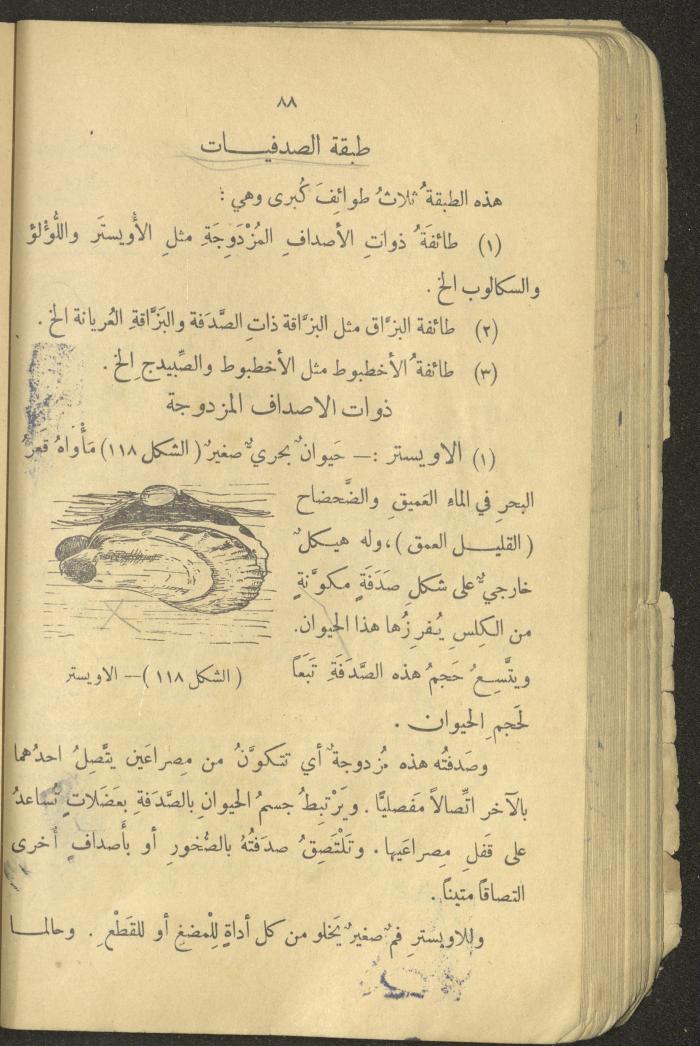 ٨٨
طبقة الصدفيـــات
هذه الطبقةُ ثلاثُ طوائِفَ كُبرى وهي :
(١) طائفَةُ ذواتِ الأصدافِ المُزْدَوِجَةِ مثلِ الأُويستَر واللُّؤْلؤ
والسكالوب الخ .
(٢) طائفة البزَّاق مثل البزَّاقة ذاتِ الصَّدَفة والبَزَّاقةِ العُريانة الخ .
(٣) طائفةُ الأخطبوط مثل الأخطبوط والصِّبيدج الخ .
ذوات الاصداف المزدوجة
(١) الاويستر :— حَيوانٌ بحريٌّ صغيرٌ ( الشكل ١١٨ ) مَأْواهُ قَعرُ
البحرِ في الماءِ العَميقِ والضَّحضاح
( القليـــل العمق )، وله هيكلٌ
خارجيٌّ على شكلِ صَدَفَةٍ مكوَّنةٍ
من الكِلسِ يُفرِزُها هذا الحيوان.
ويتَّسِعُ حَجمُ هذه الصَّدَفَةِ تَبَعاً
لحَجمِ الحيوان .
( الشكل ١١٨ )— الاويستر
وصَدفتُه هذه مُزدوجةٌ أي تتكوَّنُ من مِصراعَين يتَّصِلُ احدُهما
بالآخر اتِّصالاً مَفصليًّا . ويَرْتبِطُ جسمُ الحيوانِ بالصَّدَفةِ بعَضَلاتٍ تُساعدُ
على قَفلِ مِصراعَيها . وتَلْتَصِقُ صدَفتُهُ بالصُّخورِ أو بأصدافٍ أُخرى
التصاقاً متيناً .
وللاويسترِ فمٌ صغيرٌ يَخلو من كل أداةٍ لِلْمضغِ أو للقَطْعِ . وحالمـا